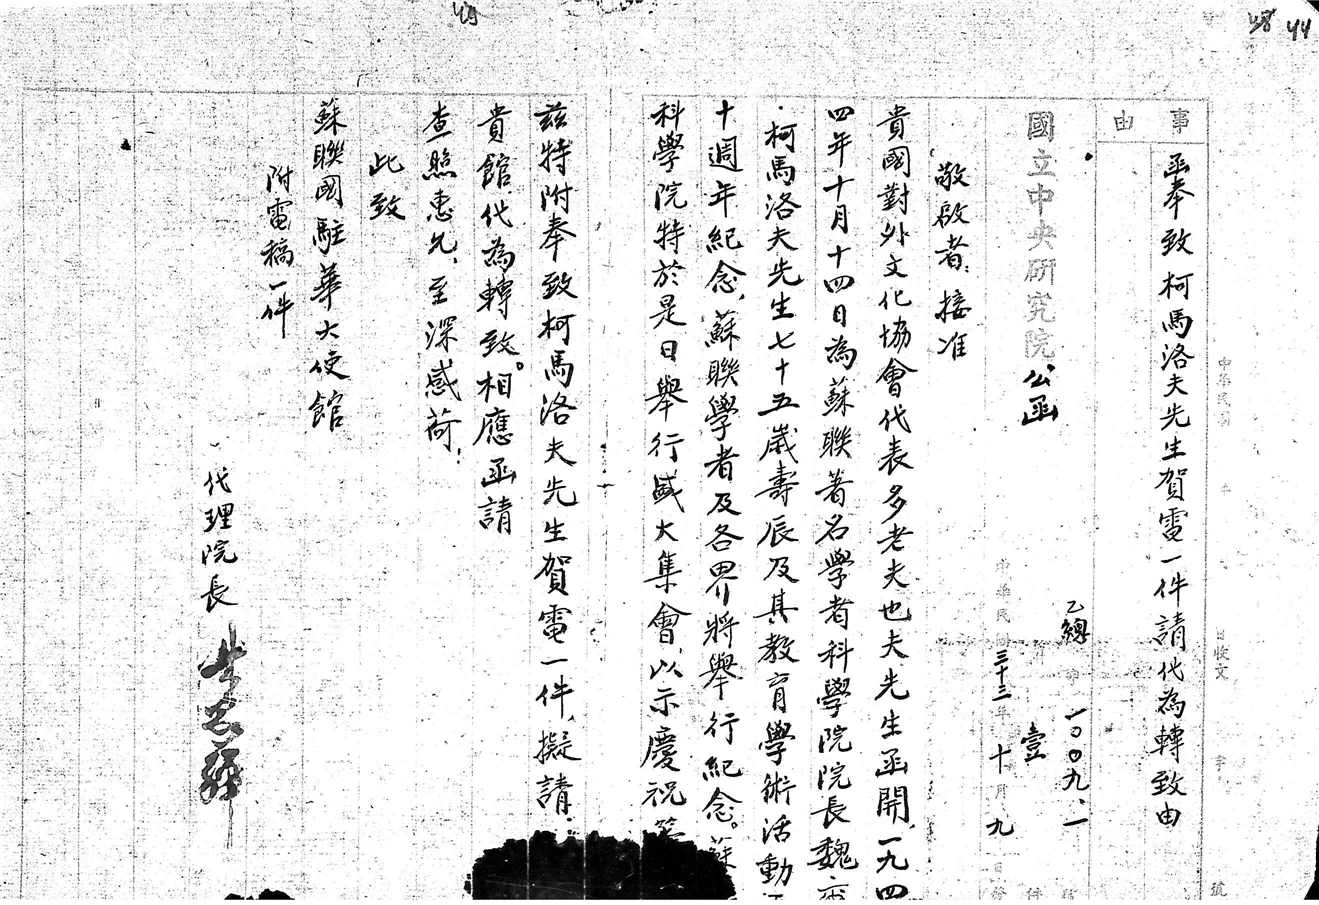 43
48 44
事由
函奉致柯馬洛夫先生賀電一件請代為轉致由
中華民國 年 日收文 字 號
乙總 一〇〇九、一
壹
國立中央研究院公函
中華民國三十三年十月九日
敬啟者：接准
貴國對外文化協會代表多老夫也夫先生函開，一九四
四年十月十四日為蘇聯著名學者科學院院長魏
柯馬洛夫先生七十五歲壽辰及其教育學術活動
十週年紀念，蘇聯學者及各界將舉行紀念。蘇
科學院特於是日舉行盛大集會，以示慶祝等
茲特附奉致柯馬洛夫先生賀電一件，擬請
貴館代為轉致。相應函請
查照惠允，至深感荷：
此致
蘇聯國駐華大使館
附電稿一件
代理院長